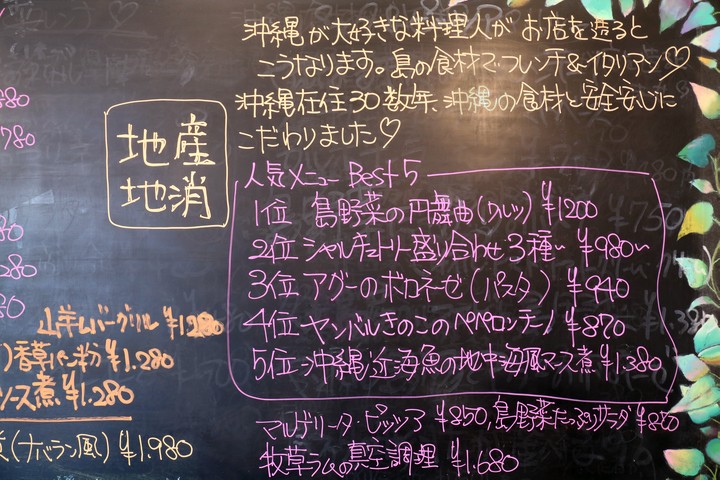 沖縄が大好きな料理人が お店を造ると
こうなります。島の食材でフレンチ&イタリアン♡
沖縄在住30数年、沖縄の食材と安全安心に
こだわりました♡
地産
地消
人気メニュー Best5
1位 島野菜の円舞曲(ワルツ) ¥1200
2位 シャルキュトリー盛り合わせ 3種〜 ¥980〜
3位 アグーのボロネーゼ(パスタ) ¥940
4位 ヤンバルきのこのペペロンチーノ ¥870
5位 沖縄近海魚の地中海風マース煮 ¥1.380
マルゲリータ・ピッツァ ¥850, 島野菜たっぷりサラダ ¥850
牧草ラムの真空調理 ¥1.680
780
280
山羊レバーグリル ¥1280
香草パン粉 ¥1.280
ソース煮 ¥1.280
(ナバラン風) ¥1.980